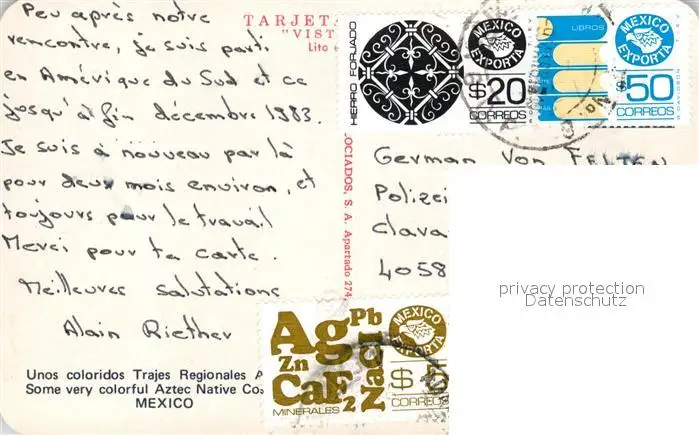 Peu après notre
rencontre, je suis parti
en Amérique du Sud et ce
jusqu'à fin décembre 1983.
Je suis à nouveau par là
pour deux mois environ, et
toujours pour le travail
Merci pour ta carte.
Meilleures salutations
Alain Riether
Unos coloridos Trajes Regionales A
Some very colorful Aztec Native Cos
MEXICO
TARJETA
"VIST
Lito
OCIADOS, S. A. Apartado 274,
HIERRO FORJADO
MEXICO
EXPORTA
$20
CORREOS
LIBROS
MEXICO
EXPORTA
$50
CORREOS
German Von FELTEN
Polizei
Clara
4058
privacy protection
Datenschutz
Ag Pb
Zn
CaF2
MINERALES
MEXICO
EXPORTA
$5
CORREO